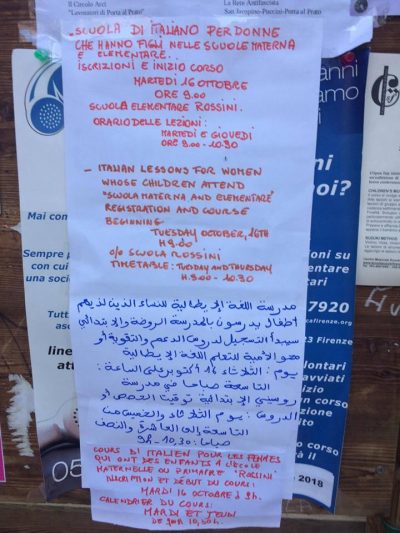 Il Circolo Arci
"Lavoratori di Porta al Prato"
La Rete Antifascista
San Jacopino-Puccini-Porta al Prato
- SCUOLA DI ITALIANO PER DONNE
CHE HANNO FIGLI NELLE SCUOLE MATERNA
E ELEMENTARE.
ISCRIZIONI E INIZIO CORSO
MARTEDÌ 16 OTTOBRE
ORE 9.00
SCUOLA ELEMENTARE ROSSINI.
ORARIO DELLE LEZIONI:
MARTEDÌ E GIOVEDÌ
ORE 9.00 - 10.30
- ITALIAN LESSONS FOR WOMEN
WHOSE CHILDREN ATTEND
"SCUOLA MATERNA AND ELEMENTARE"
REGISTRATION AND COURSE
BEGINNING
TUESDAY OCTOBER, 16TH
H 9.00
c/o SCUOLA ROSSINI
TIMETABLE: TUESDAY AND THURSDAY
H. 9.00 - 10.30
مدرسة اللغة الإيطالية للنساء الذين لديهم
أطفال يدرسون بالمدرسة الروضة والإبتدائي
سيبدأ التسجيل لدروس الدعم والتقوية أو
محو الأمية لتعلم اللغة الإيطالية
يوم: الثلاثاء 16 أكتوبر على الساعة:
التاسعة صباحا في مدرسة
روسيني الإبتدائية توقيت الحصص أو
الدروس: يوم الثلاثاء والخميس من
التاسعة إلى العاشرة والنصف
صباحا: 9h - 10,30
COURS DI ITALIEN POUR LES FEMMES
QUI ONT DES ENFANTS A L'ÉCOLE
MATERNELLE OU PRIMAIRE "ROSSINI"
INSCRIPTION ET DÉBUT DU COURS:
MARDI 16 OCTOBRE à 9h.
CALENDRIER DU COURS:
MARDI ET JEUDI
DE 9h à 10,30h.
Mai co
Sempre p
con cui
una socie
Tutt
as
line
05
anni
amo
oi?
7920
cafirenze.org
23 Firenze
n corso
2018